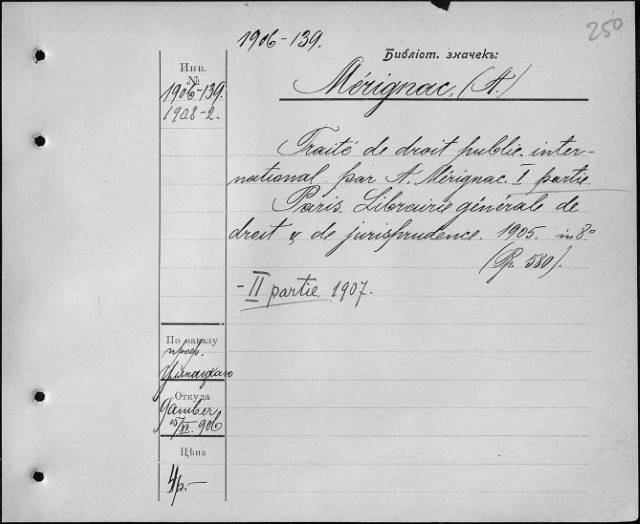 250
1906-139.
Библіот. значекъ:
Инв.
№
1906-139.
1908-2.
Mérignac, (A.)
Traité de droit public inter-
national par A. Mérignac. I partie.
Paris. Librairie générale de
droit & de jurisprudence. 1905. in 8º
(Pp. 580).
- II partie 1907.
По заказу
проф.
Откуда
906
Цѣна
4р.-